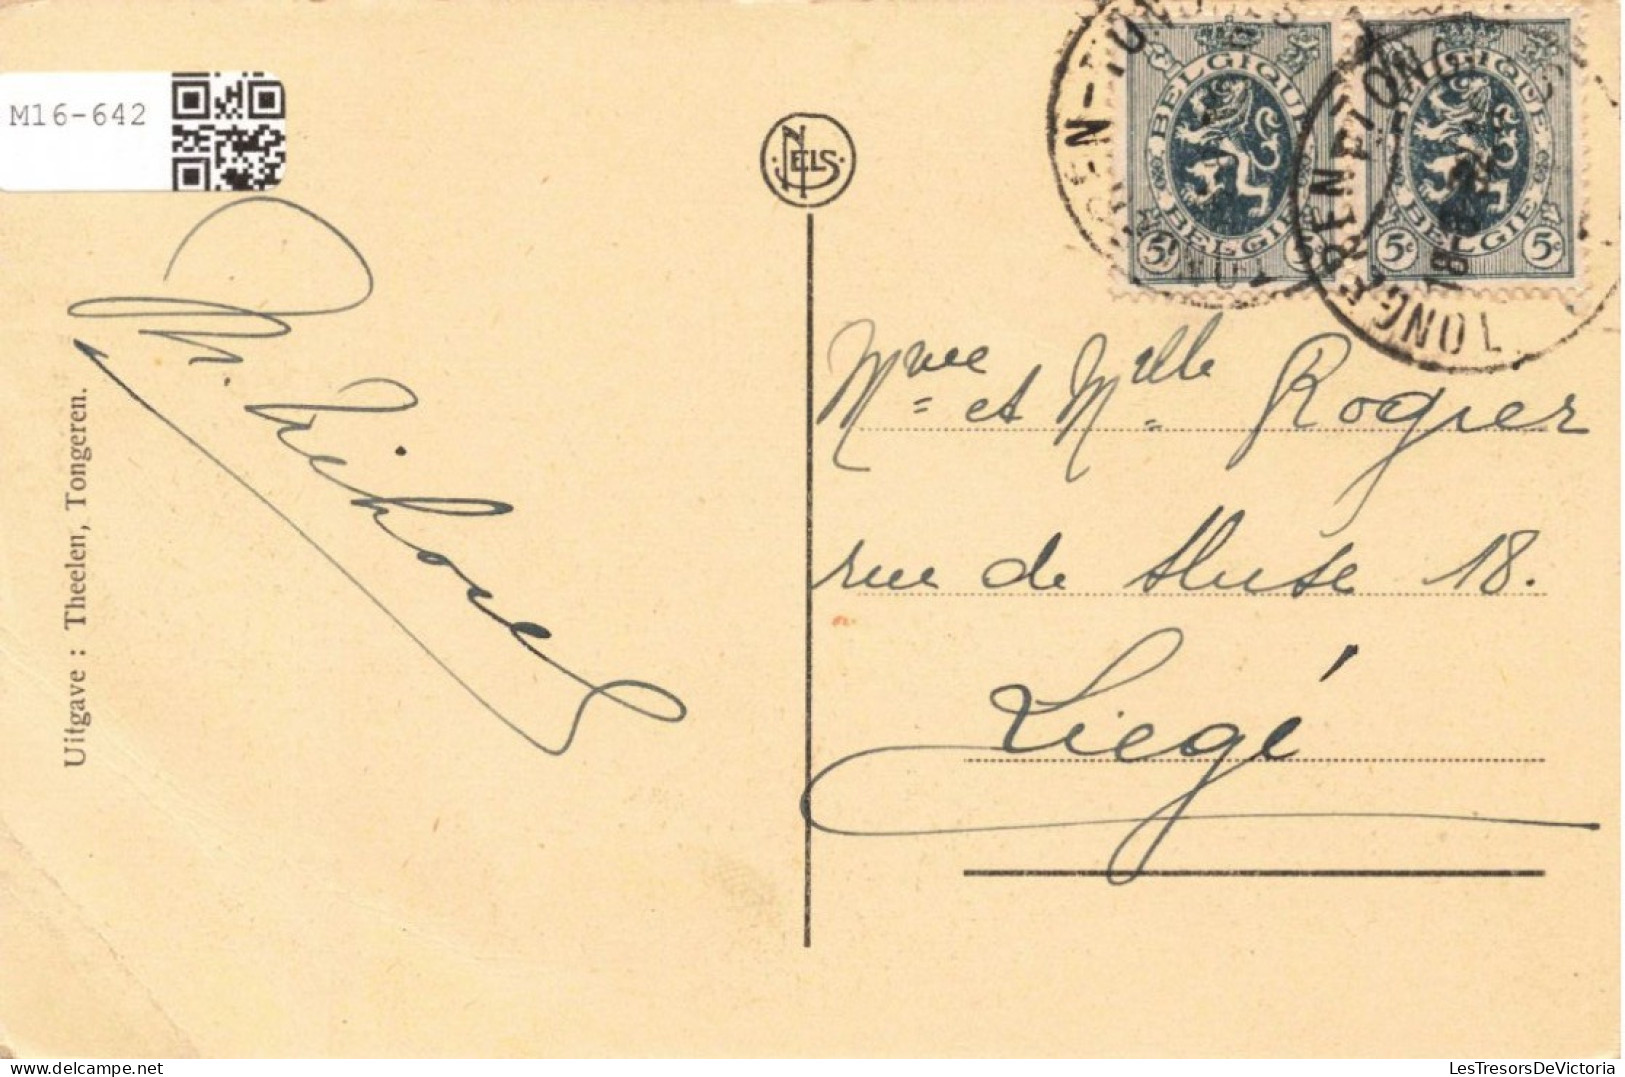 M16-642
NELS
BELGIQUE
BELGIË
5c
BELGIQUE
BELGIE
5c 5c
TONGEREN TONGRES
Uitgave : Theelen, Tongeren.
Mme et Mlle Rogier
rue de 18.
Liegé
LesTresorsDeVictoria